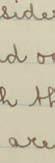 side
d o
h th
are